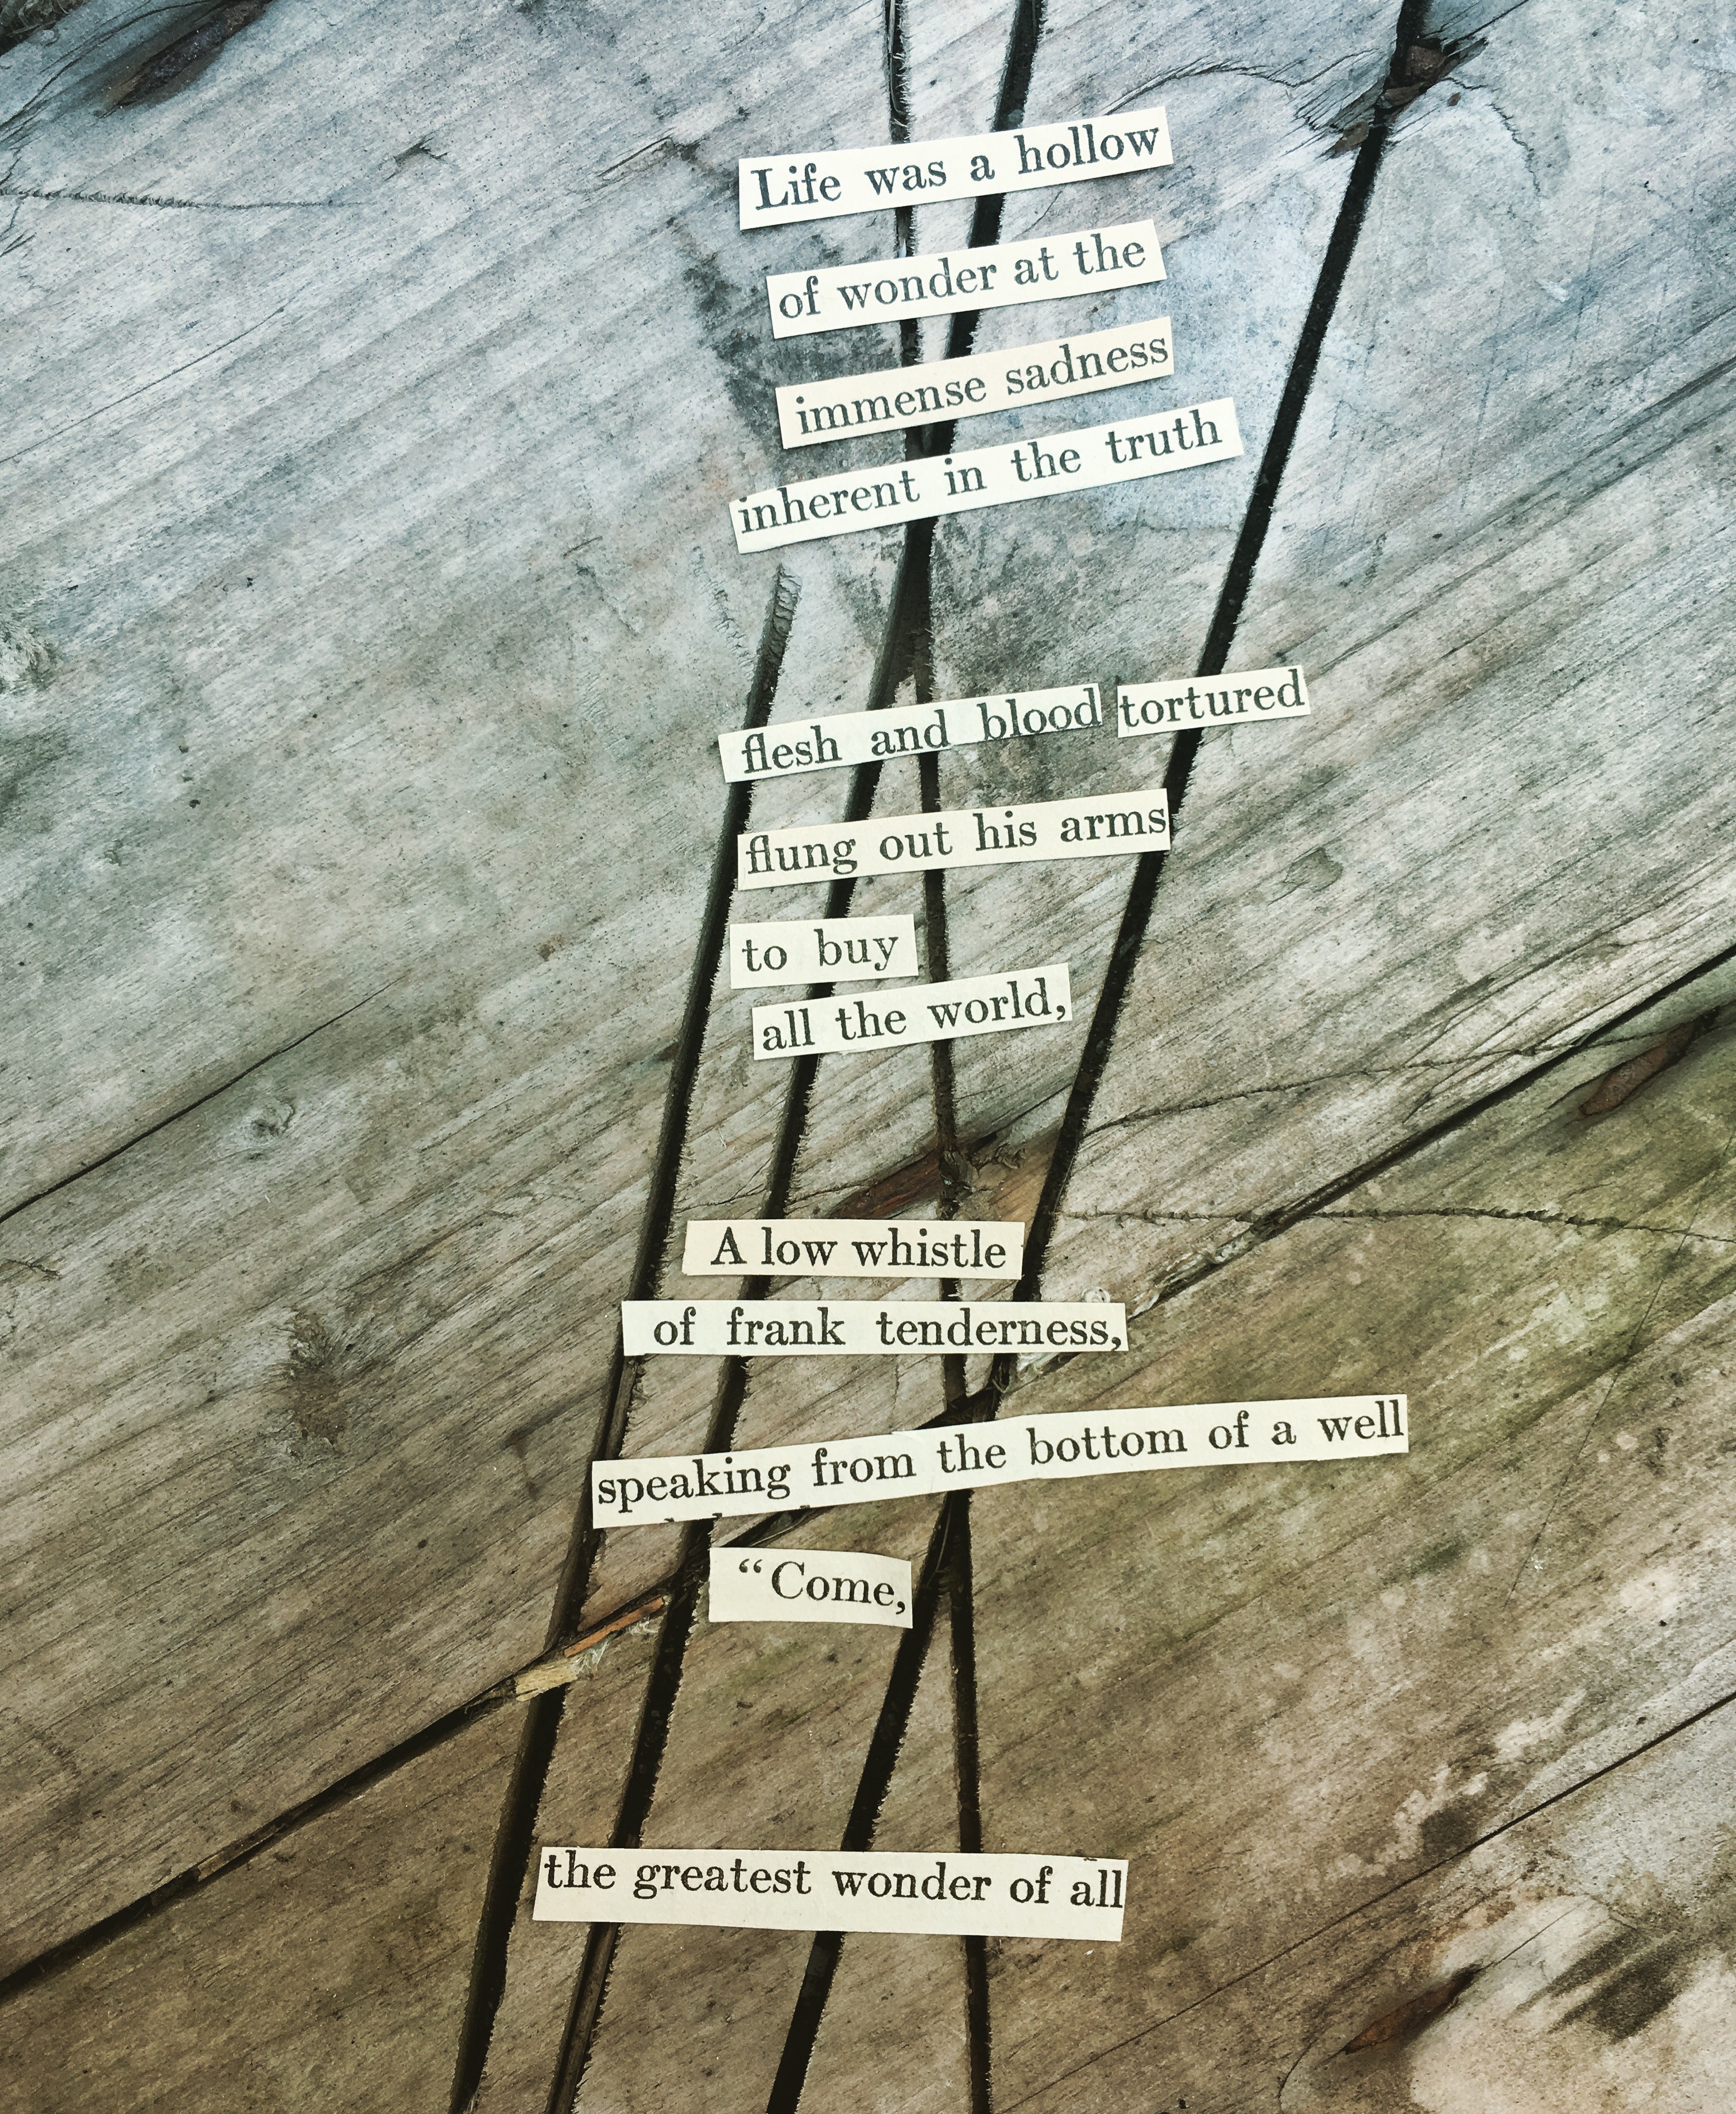 Life was a hollow
of wonder at the
immense sadness
inherent in the truth
flesh and blood tortured
flung out his arms
to buy
all the world,
A low whistle
of frank tenderness,
speaking from the bottom of a well
“Come,
the greatest wonder of all